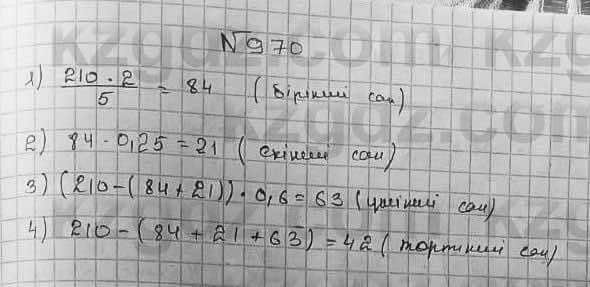 N970
1) 210 · 2 / 5 = 84 (бірінші сан)
2) 84 · 0,25 = 21 (екінші сан)
3) (210 - (84 + 21)) · 0,6 = 63 (үшінші сан)
4) 210 - (84 + 21 + 63) = 42 (төртінші сан)
kzgdz.com